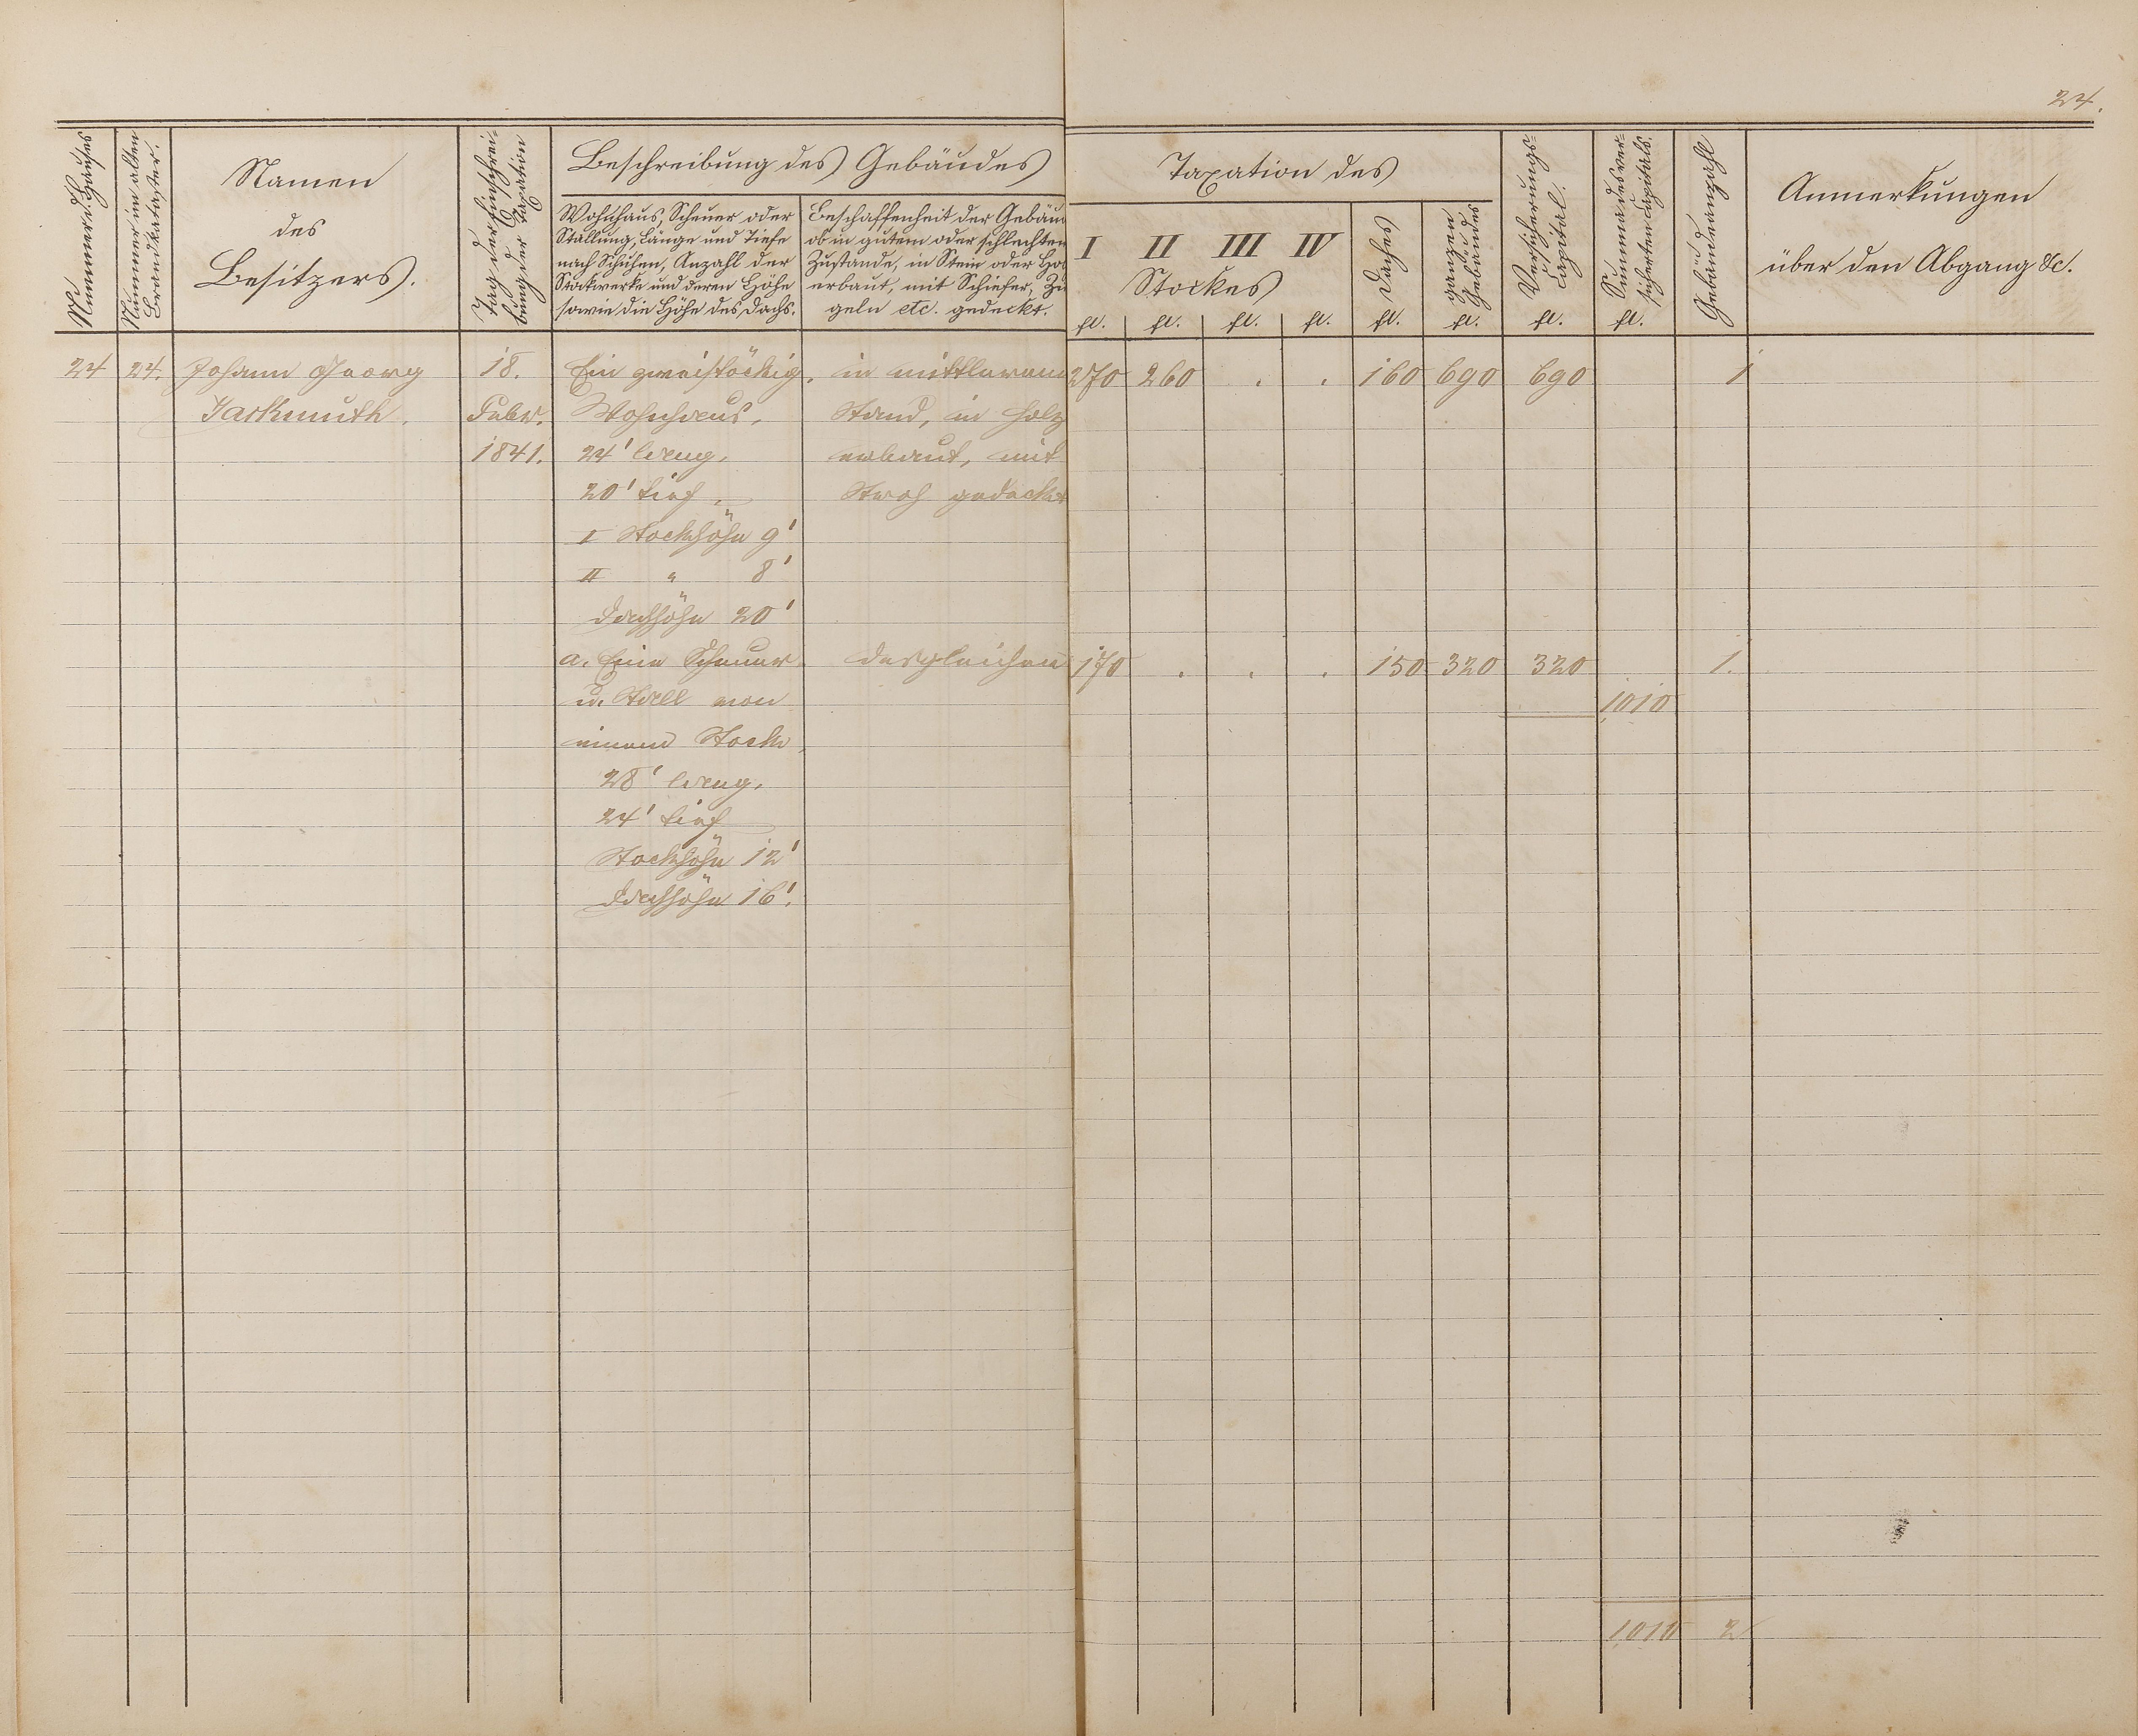 24.
Nummer d. Hauses
Nummer im alten
Brandkataster.
Namen
des
Besitzers.
Tag der Einschrei-
bung der Taxation
Beschreibung des Gebäudes
Wohnhaus, Scheuer oder
Stallung, Länge und Tiefe
nach Schuhen, Anzahl der
Stockwerke und deren Höhe
sowie die Höhe des Dachs.
Beschaffenheit der Gebäu
ob in gutem oder schlechten
Zustande, in Stein oder Ho
erbaut, mit Schiefer, Zi
geln etc. gedeckt.
Taxation des
I II III IV
Stockes
Daches
ganzen
Gebäudes
Versicherungs-
Capital.
Summa des ver-
sicherten Capitals.
Gebäudeanzahl
Anmerkungen
über den Abgang &c.
fl. fl. fl. fl. fl. fl. fl. fl.
24 24. Johann Georg 18. Ein zweistöckig. in mittlerem 270 260 . . 160 690 690 1
Febr. Wohnhaus, Stand, in Holz
1841. 24' lang, erbaut, mit
20' tief, Stroh gedeckt
I Stockhöhe 9'
II " 8'
Dachhöhe 20'
a. Eine Scheuer desgleichen 170 . . . 150 320 320 1.
u. Stall von 1010
einem Stock,
28' lang,
24' tief
Stockhöhe 12'
Dachhöhe 16'.
1010 2